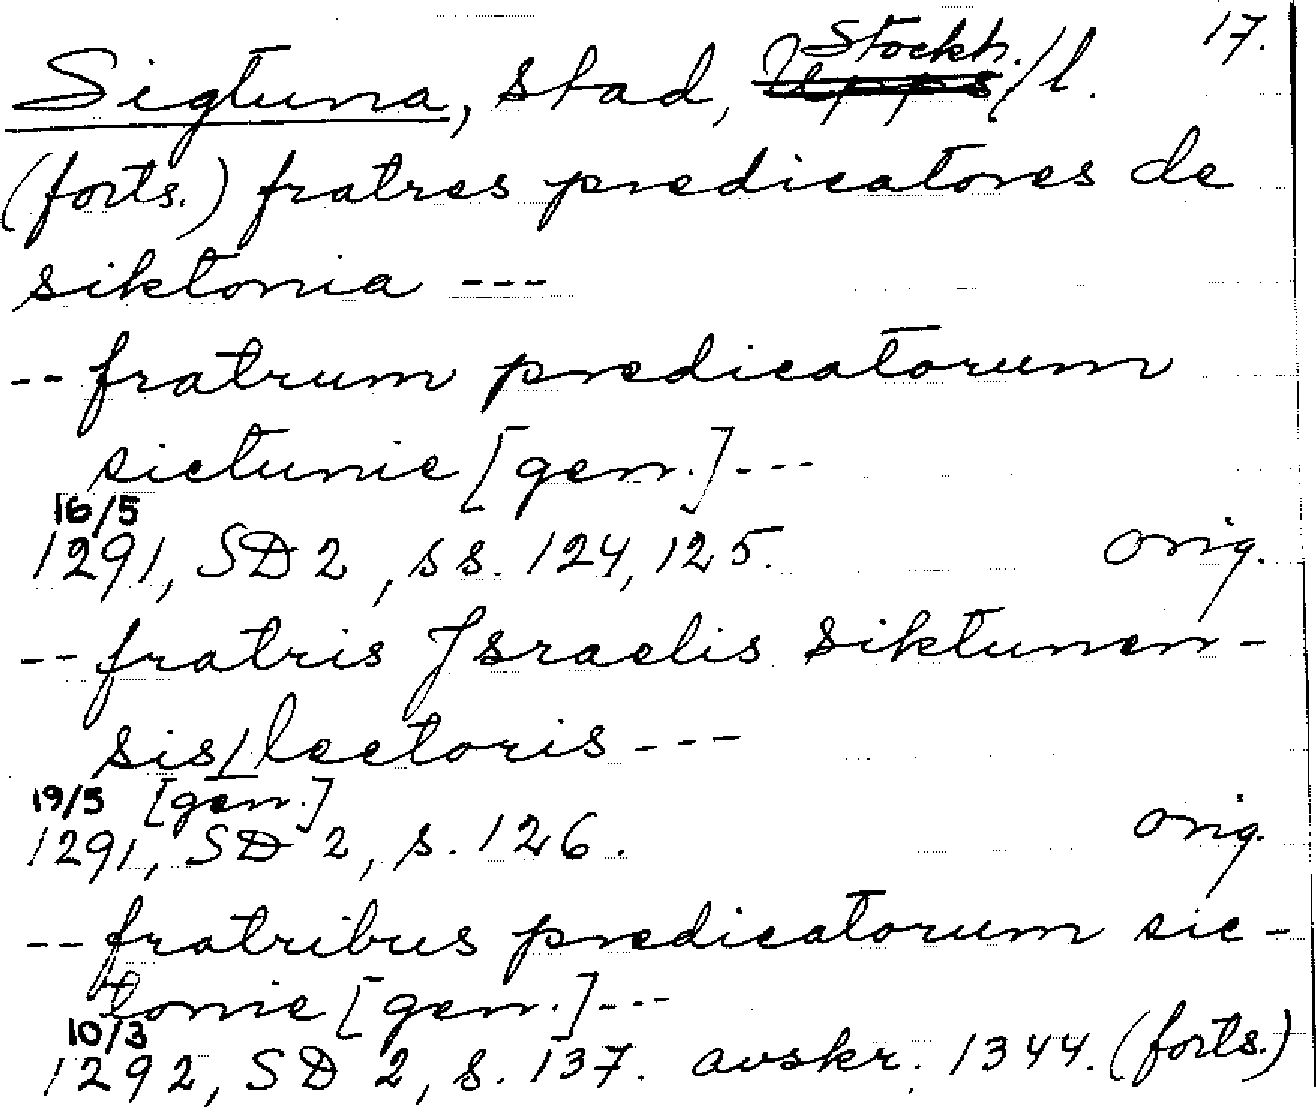 17.
Sigtuna, stad, Stockh./l.
(forts.) fratres predicatores de
siktonia ---
-- fratrum predicatorum
sictunie [gen.] ---
16/5
1291, SD 2, ss. 124, 125. orig.
-- fratris Jsraelis siktunen-
sis / lectoris ---
19/5 [gen.]
1291, SD 2, s. 126. orig.
-- fratribus predicatorum sic-
tonie [gen.] ---
10/3
1292, SD 2, s. 137. avskr. 1344. (forts.)